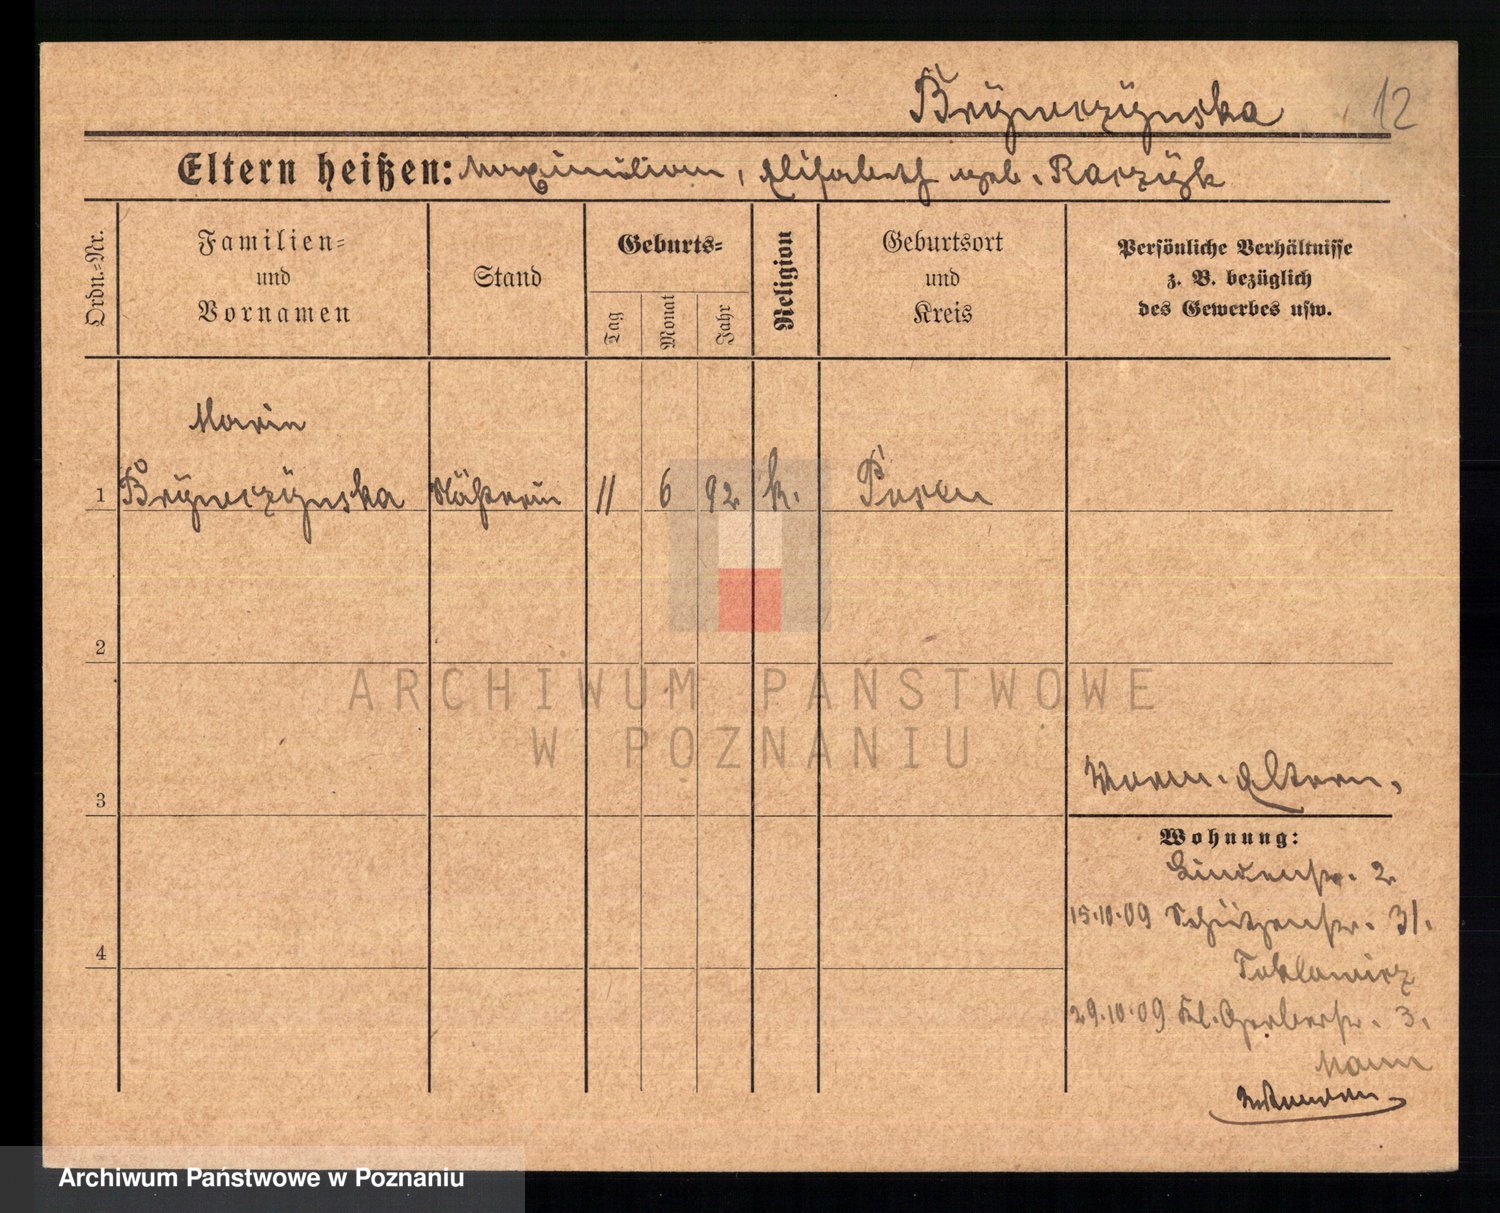 Brzyweczynska 12
Eltern heißen: Maximilian, Elisabeth geb. Raczyk
Ordn.=Nr.
Familien=
und
Vornamen
Stand
Geburts=
Tag
Monat
Jahr
Religion
Geburtsort
und
Kreis
Persönliche Verhältnisse
z. B. bezüglich
des Gewerbes usw.
Marie
1 Näherin 11 6 92 k. Posen
2
3
Eltern.
Wohnung:
Lindenstr. 2
15.10.09 Schützenstr. 31.
29.10.09 Kl. Gerberstr. 3.
Mann
4
ARCHIWUM PAŃSTWOWE
W POZNANIU
Archiwum Państwowe w Poznaniu